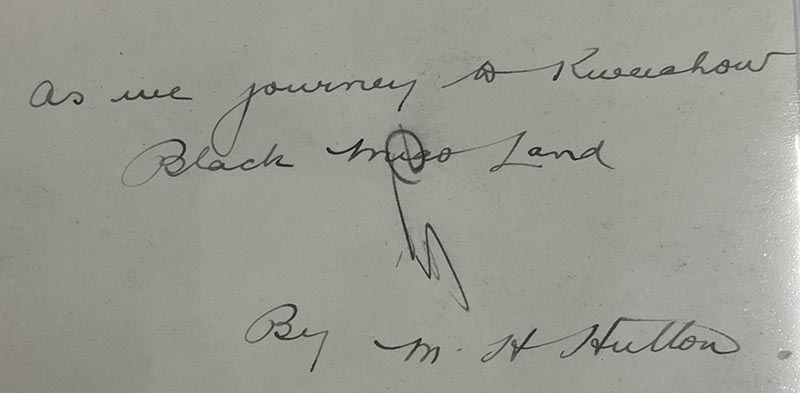 As we journey to Kweichow
Black Miao Land
By M. H Hutton